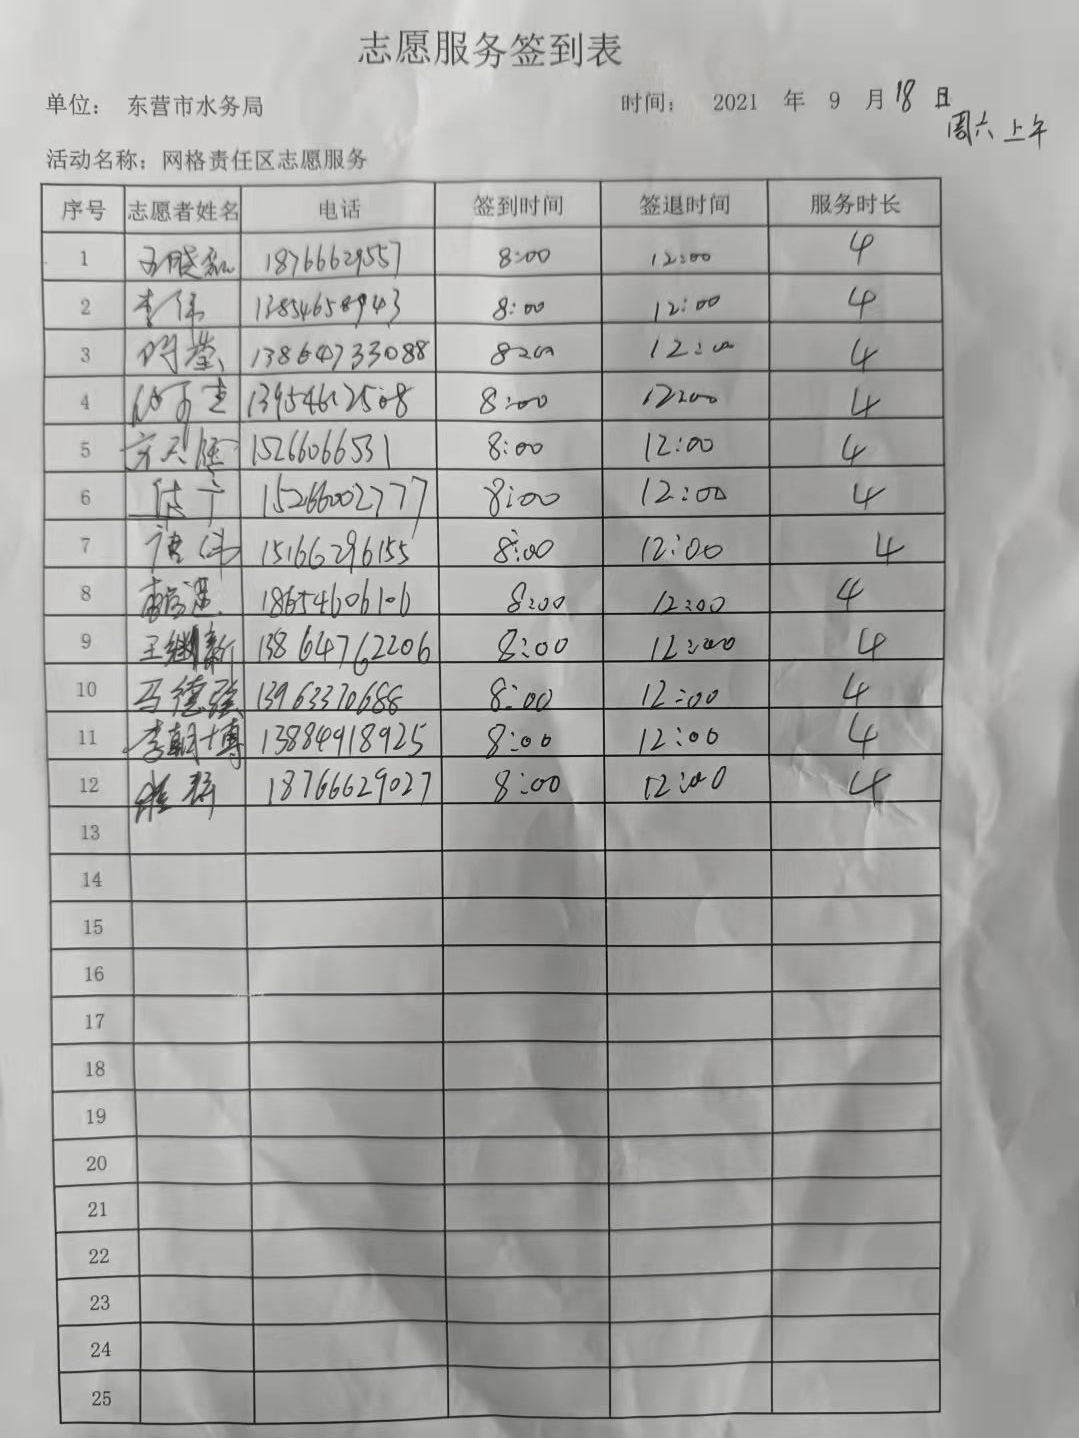 志愿服务签到表
单位： 东营市水务局 时间： 2021 年 9 月 18 日
周六上午
活动名称：网格责任区志愿服务
序号 志愿者姓名 电话 签到时间 签退时间 服务时长
1 18766629557 8:00 12:00 4
2 李伟 13854658943 8:00 12:00 4
3 13864733088 8:00 12:00 4
4 13954612508 8:00 12:00 4
5 15266066531 8:00 12:00 4
6 15266002777 8:00 12:00 4
7 唐伟 15166296155 8:00 12:00 4
8 18654606106 8:00 12:00 4
9 王继新 13864762206 8:00 12:00 4
10 马德强 13963370688 8:00 12:00 4
11 李朝博 13884918925 8:00 12:00 4
12 18766629027 8:00 12:00 4
13
14
15
16
17
18
19
20
21
22
23
24
25